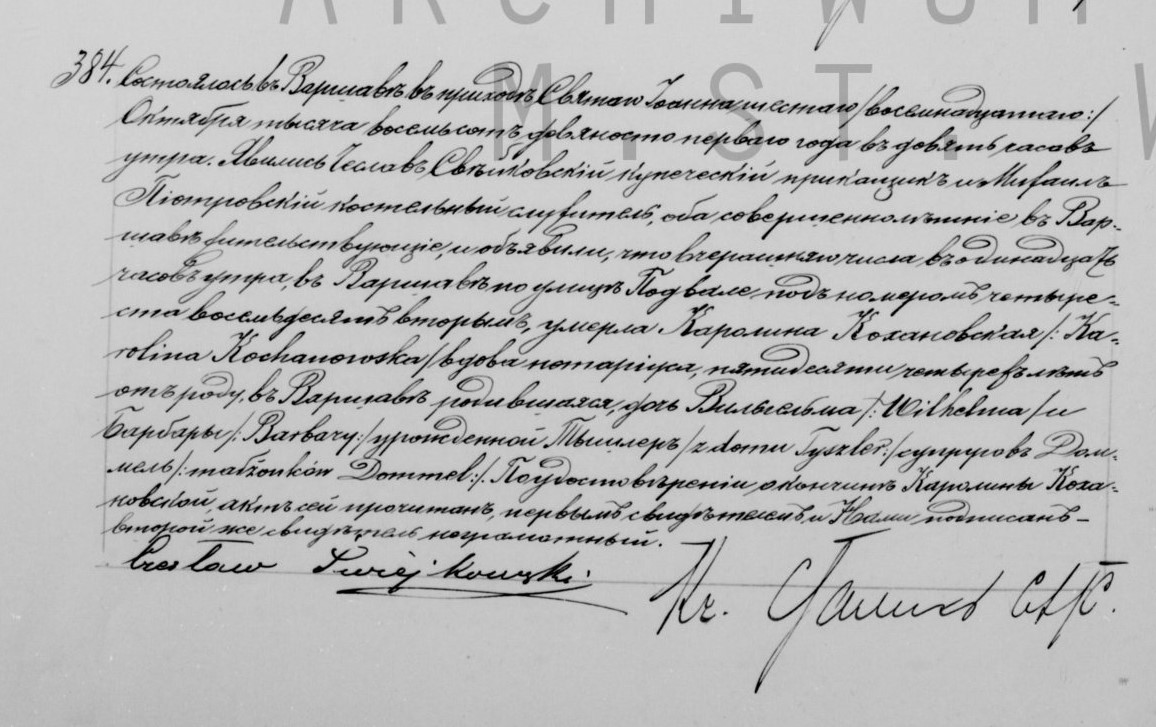 ARCHIWUM
M. ST. W
384. Состоялось въ Варшавѣ въ приходѣ Святаго Іоанна шестаго /восемнадцатаго:/
Октября тысяча восемьсотъ девяносто перваго года въ девять часовъ
утра. Явились Чеславъ Свѣйковскій купеческій прикащикъ и Михаилъ
Піотровскій костельный служитель, оба совершеннолѣтніе въ Вар-
шавѣ жительствующіе, и объявили, что вчерашняго числа въ одинадцать
часовъ утра, въ Варшавѣ по улицѣ Подвале подъ номеромъ четыре-
ста восемьдесятъ вторымъ, умерла Каролина Кохановская /: Ka-
rolina Kochanowska/ вдова нотаріуса, пятидесяти четырехъ лѣтъ
отъ роду, въ Варшавѣ родившаяся, дочь Вильгельма /: Wilhelma / и
Барбары /: Barbary:/ урожденной Тышлеръ / z domu Tyszler:/ супруговъ Дом-
мель /: małżonków Dommel:/. По удостовѣреніи о кончинѣ Каролины Коха-
новской, актъ сей прочитанъ, первымъ свидѣтелемъ и Нами подписанъ -
второй же свидѣтель неграмотный.
Czesław Swiejkowski
Кс.